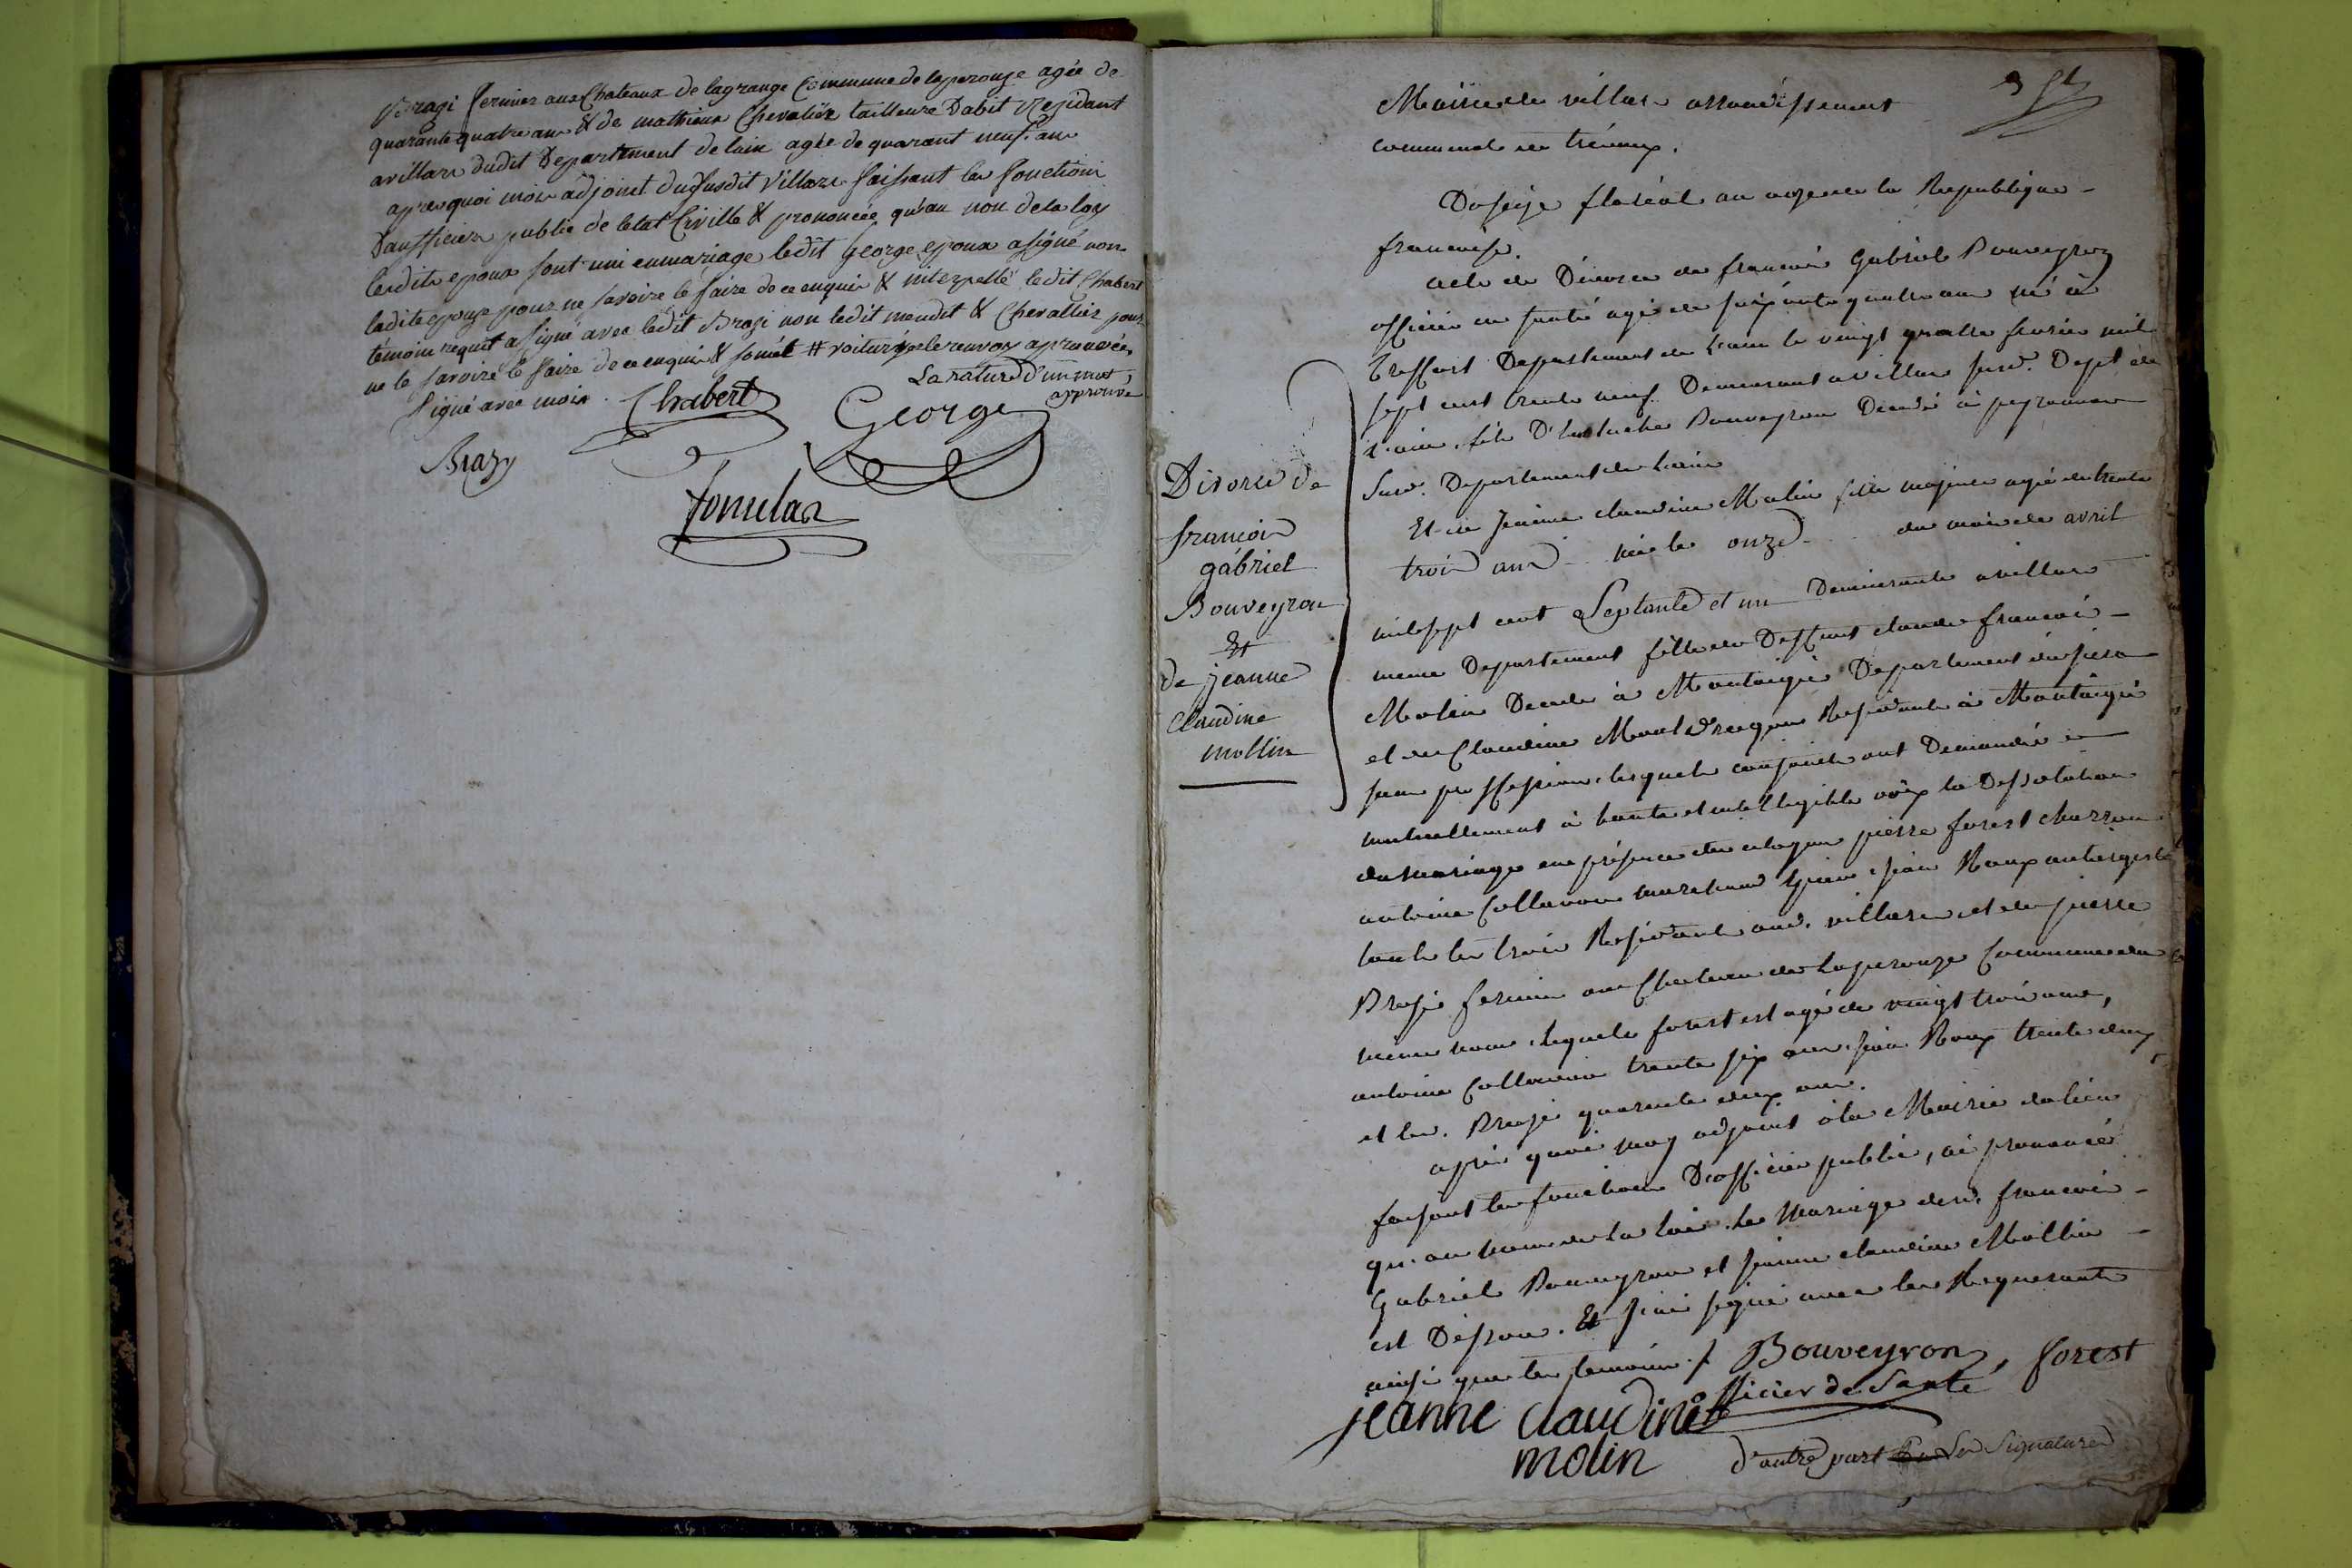 Brazi fermier aux Chateaux de lagrange Commune de laperouze agée de
quarante quatre ans & de mathieux Chevalier tailleure Dabit Residant
avillars dudit Departement de lain agée de quarant neuf ans
apres quoi moi adjoint du susdit Villars faissant les fonctions
Daufficiers public de letat Civille & prononcée qu'au non de la loy
lesdits epoux sont uni enmariage ledit George epoux asigné non
ladite epouse pour ne savoire le faire de ce enquis & interpellé ledit Chabert
témoin requit asigné avec ledit Brazi non ledit meudet & Chevallier pour
ne le savoire le faire de ce enquis & somét # voiturié le renvoy aprouvée,
signé avec moi La rature d'un mot
approuvé
Chabert George
Brazy
tonulas
Mairie de villars arrondissement
communal de trévoux.
Du seize floréal an onze de la Republique
francaise.
acte de Divorce de francois Gabriel Bouveyron
officier de santé agé de soixante quatre ans né à
Treffort Departement de L'ain le vingt quatre fevrier mil
sept cent trente neuf Demeurant a villars susd. Dept de
L'ain, fils D'Eustache Bouveyron Decedé à
Susd. Departement de L'ain
Et de Jeanne claudine Molin fille majeure agée de trente
trois ans née le onze du mois de avril
mil sept cent Septante et un Demeurante a villars
meme Departement fille de Deffunt claude francois
Molin Decedé à Montaigu Departement du jura
et de Claudine Residante à Montaigu
sans proffession, lesquels conjoints ont Demandés
mutuellement à haute et intelligible voix la Dessolution
du Mariage en présence des citoyens pierre forest charron
antoine Collavon marchand jean Roux aubergiste
touts les trois Residants aud. villars et de pierre
Brazi fermier au Chateau de Laperouze Commune du
meme nom, lequels forest est agé de vingt trois ans,
antoine Collavon trente six ans, jean Roux trente deux
et led. Brazi quarante deux ans.
après quoi moy adjoint à la Mairie du lieu
faisant les fonctions D'officier public, ai prononcé
qu'au nom de La loi Le Mariage desd. francois
Gabriel Bouveyron et Jeanne claudine Mollin
est Dissous. Et j'ai signé avec les Requerants
ainsi que les temoins. Bouveyron, forest
officier de Santé
jeanne claudine
molin
d'autre part Les Signatures
Divorce de
françois
gabriel
Bouveyron
Et
de jeanne
Claudine
mollin